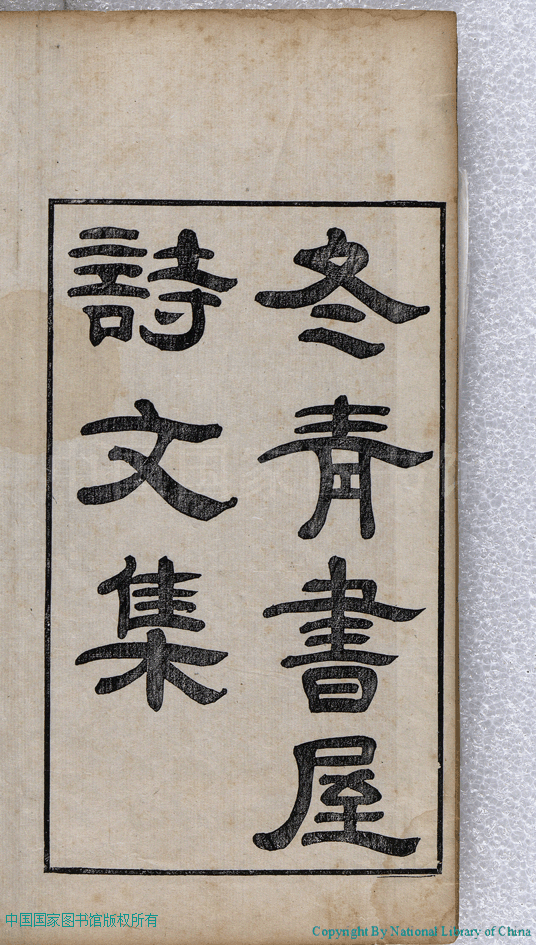 冬青書屋
詩文集
中国国家图书馆版权所有
Copyright By National Library of China